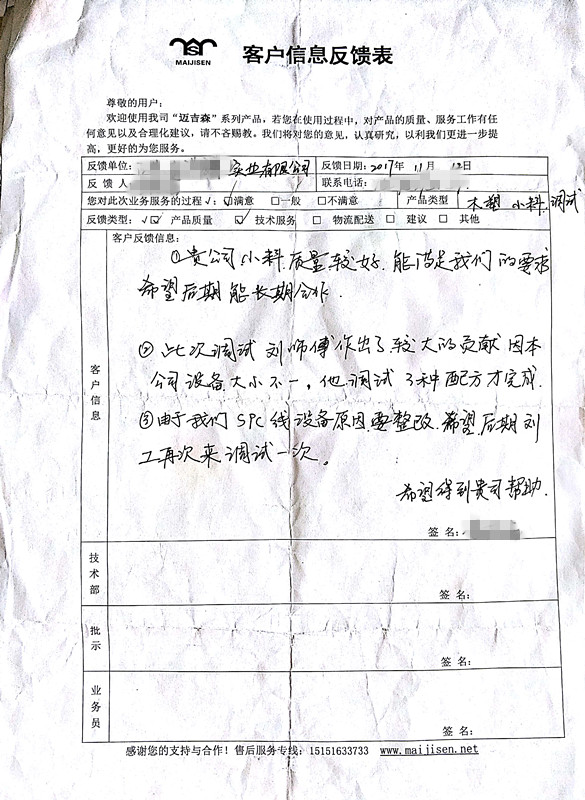 MAIJISEN
客户信息反馈表
尊敬的用户：
欢迎使用我司“迈吉森”系列产品，若您在使用过程中，对产品的质量、服务工作有任
何意见以及合理化建议，请不吝赐教。我们将对您的意见，认真研究，以利我们更进一步提
高，更好的为您服务。
反馈单位： 实业有限公司 反馈日期：2017年 11月 12日
反 馈 人 联系电话：
您对此次业务服务的过程√：☑满意 □一般 □不满意 产品类型 木塑 小料 调试
反馈类型：√☑ 产品质量 ☑ 技术服务 □ 物流配送 □ 建议 □ 其他
客户信息
客户反馈信息：
①贵公司小料质量较好．能满足我们的要求
希望后期能长期合作．
② 此次调试刘师傅作出了较大的贡献因本
公司设备大小不一，他调试3种配方才完成．
③由于我们SPC线设备原因．要整改．希望后期刘
工再次来调试一次。
希望得到贵司帮助．
签 名：
技术部
签 名：
批示
签 名：
业务员
签 名：
感谢您的支持与合作！售后服务专线：15151633733 www.maijisen.net